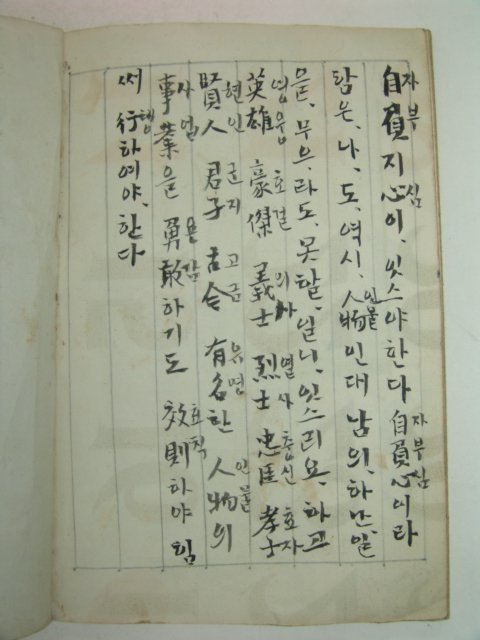 自負지心이、잇스야한다 自負心이라
함은、나、도、역시、人物인대 남의、하난、일
을、무으、라도、못할、일니、잇스리요、하고
英雄 豪傑 義士 烈士 忠臣 孝子
賢人 君子 古今 有名한 人物의
事業을 勇敢하기도 效則하야 힘
써 行하여야、한다
자부 심 자부심
인물
영웅 호걸 의사 열사 충신 효자
현인 군자 고금 유명 인물
사업 용감 효칙
행